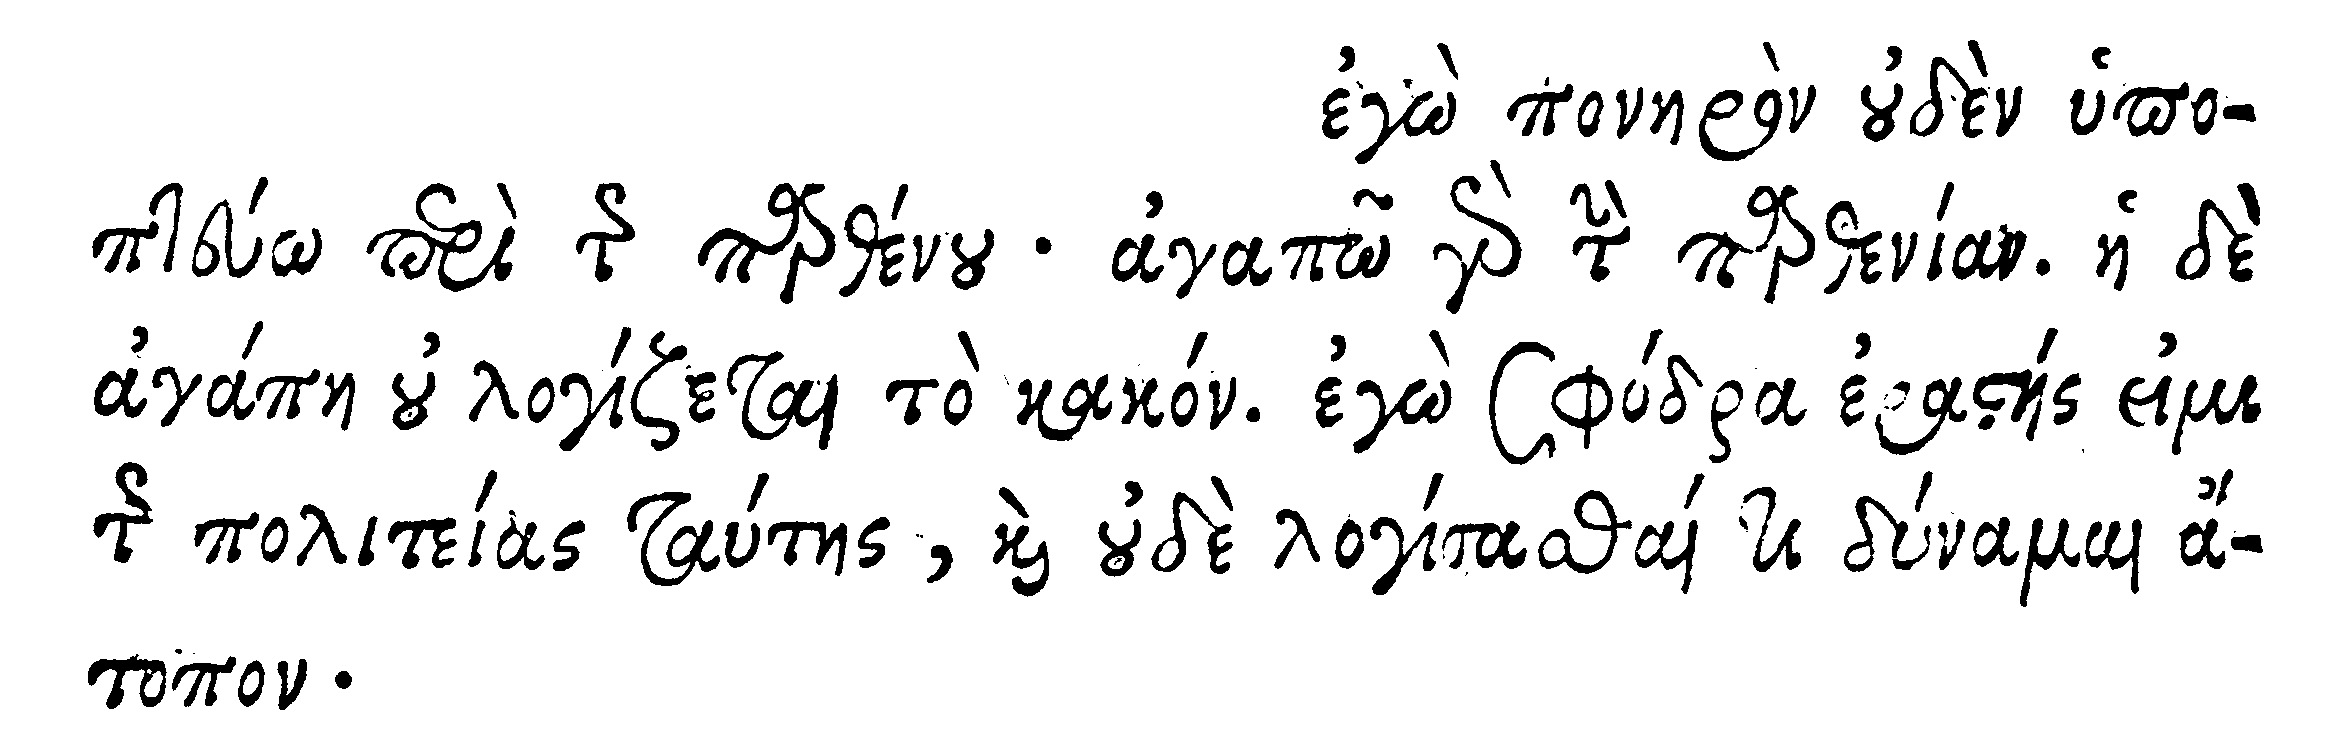 ἐγὼ πονηρὸν οὐδὲν ὑπο-
πτεύω περὶ τῆς παρθένου · ἀγαπῶ γὰρ τὴν παρθενίαν. ἡ δὲ
ἀγάπη οὐ λογίζεται τὸ κακόν. ἐγὼ σφόδρα ἐραστής εἰμι
τῆς πολιτείας ταύτης, καὶ οὐδὲ λογίσασθαί τι δύναμαι ἄ-
τοπον ·